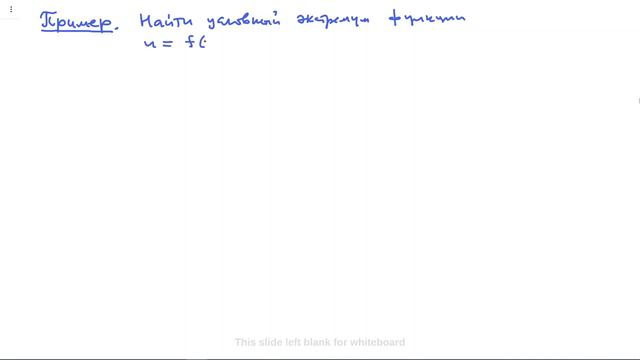 Пример. Найти условный экстремум функции
u = f(
This slide left blank for whiteboard